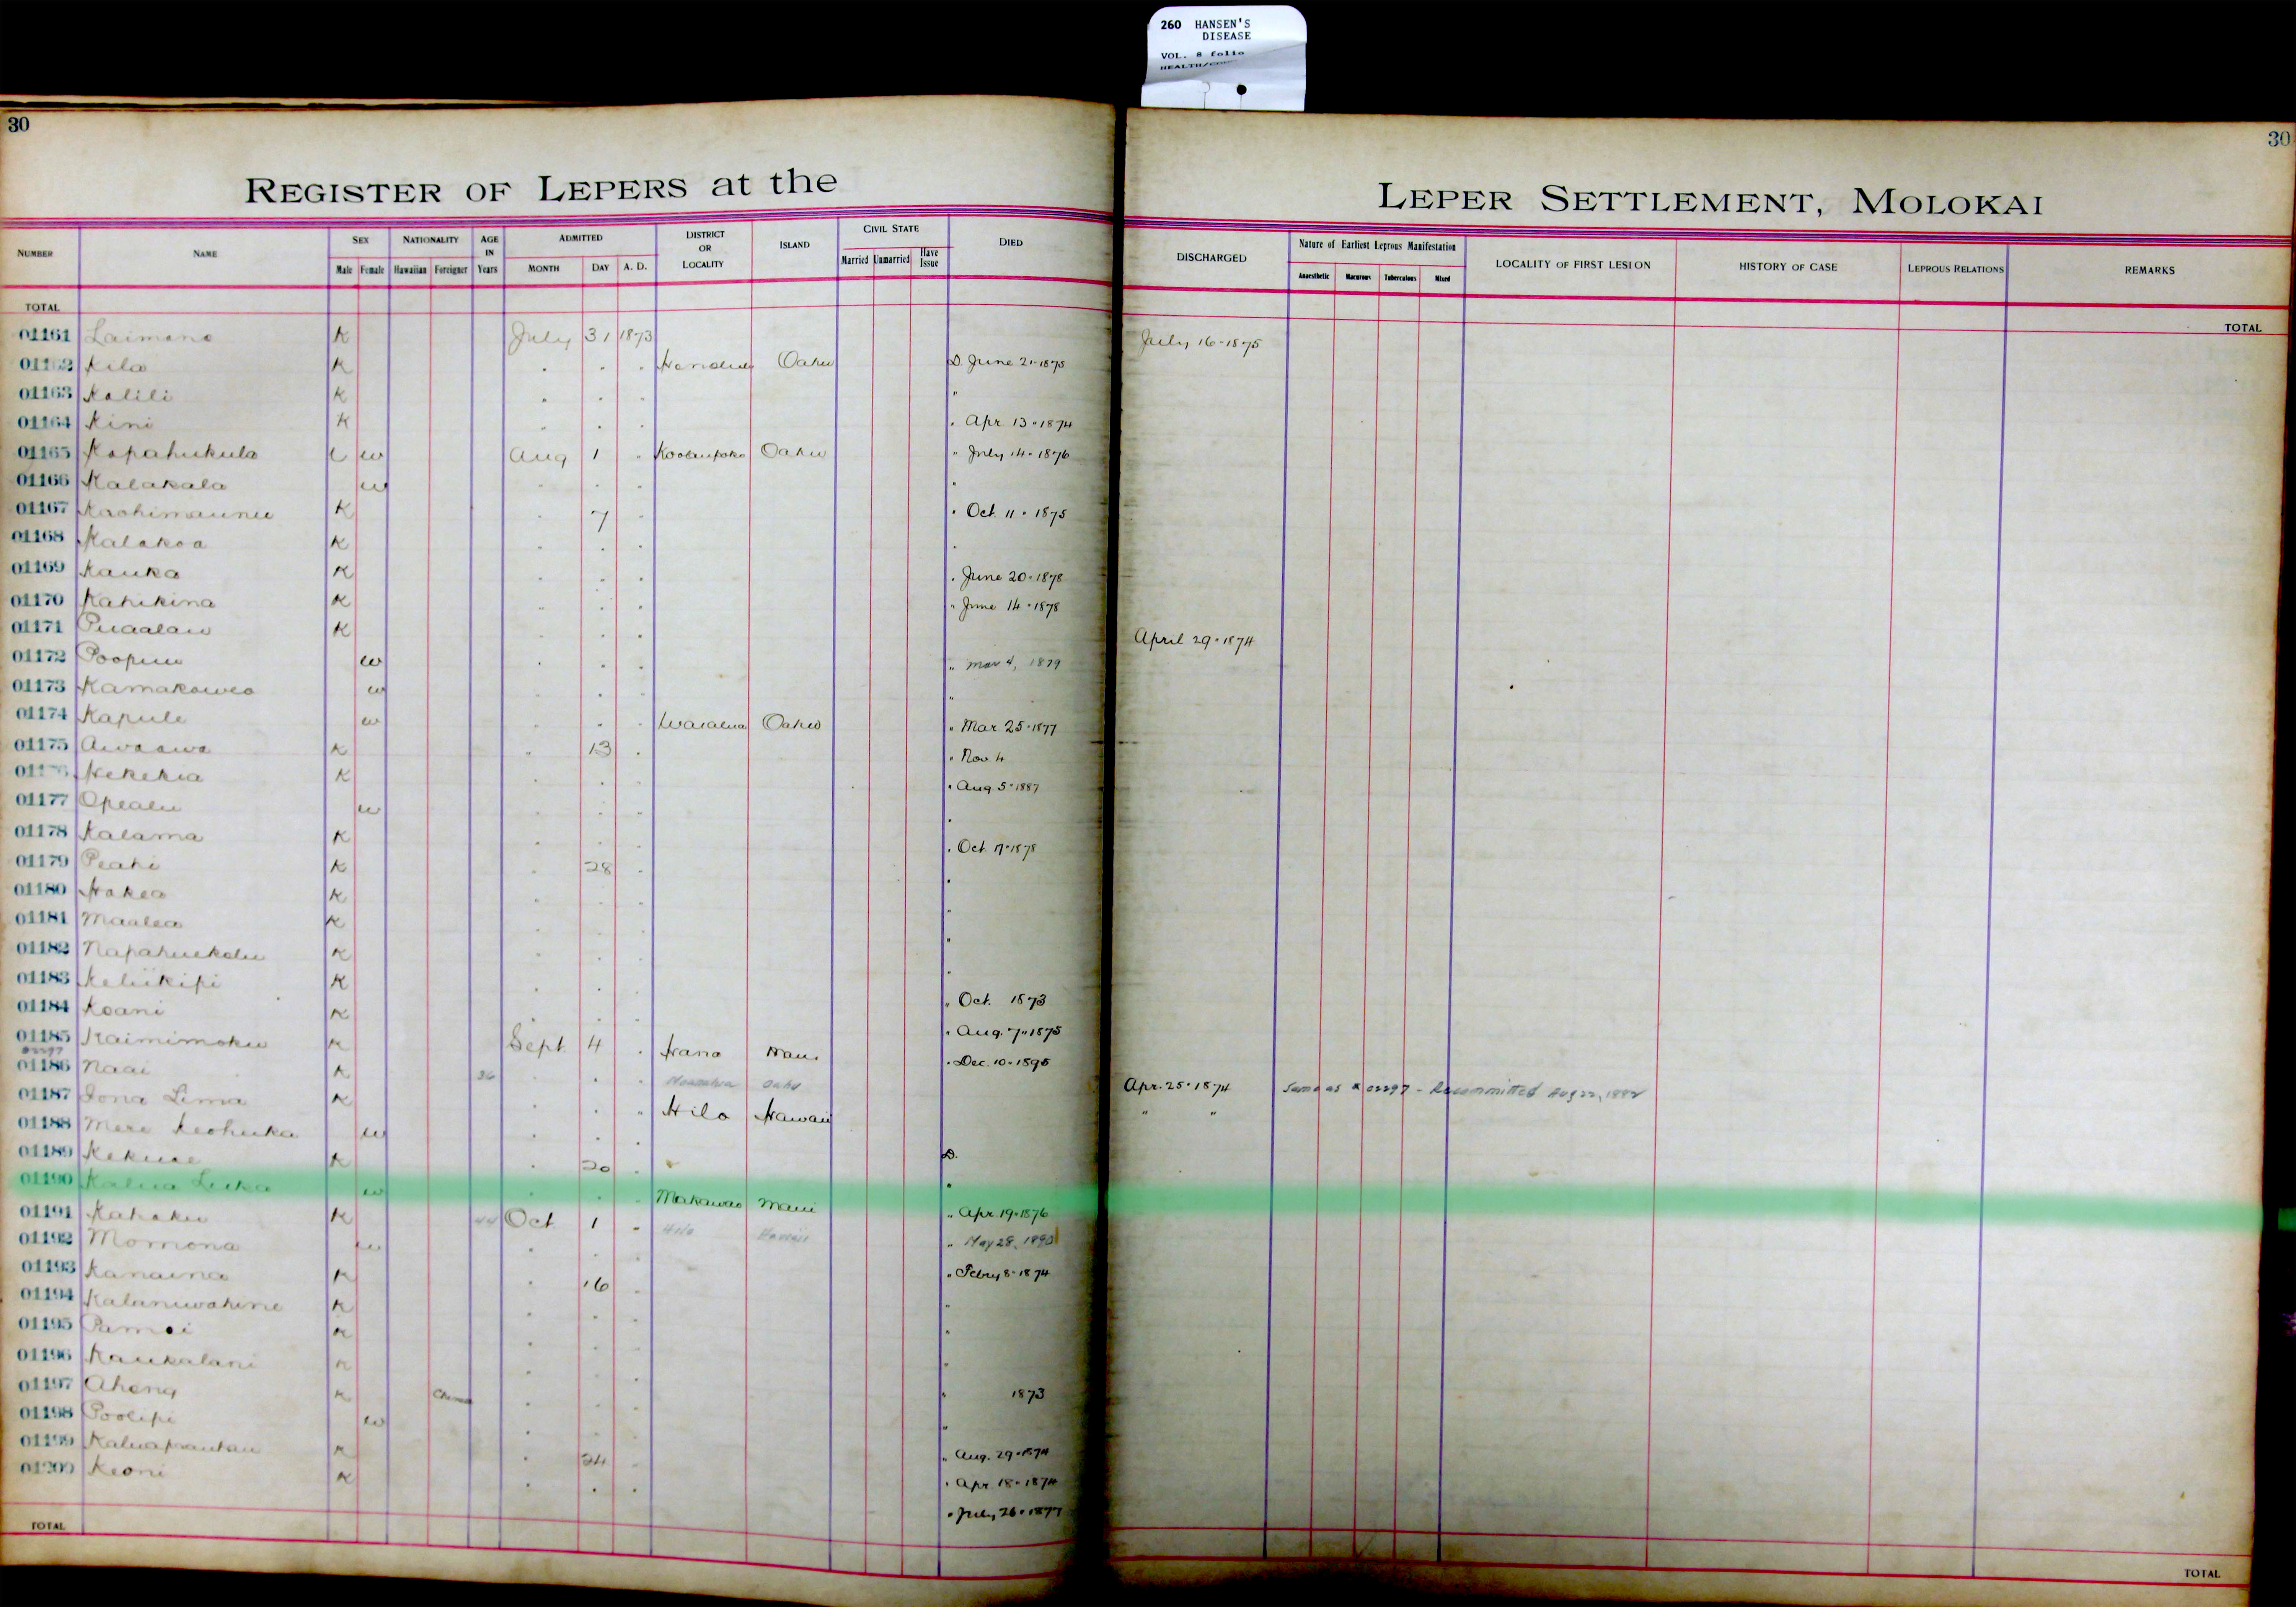 260 HANSEN'S
DISEASE
VOL. 8 folio
30
30
REGISTER OF LEPERS at the
LEPER SETTLEMENT, MOLOKAI
NUMBER NAME SEX NATIONALITY AGE IN ADMITTED DISTRICT OR LOCALITY ISLAND CIVIL STATE DIED
Male Female Hawaiian Foreigner Years MONTH DAY A. D. Married Unmarried Have Issue
DISCHARGED Nature of Earliest Leprous Manifestation LOCALITY OF FIRST LESION HISTORY OF CASE LEPROUS RELATIONS REMARKS
Anaesthetic Macurous Tuberculous Mixed
TOTAL
TOTAL
01161 Laimana K July 31 1873 July 16-1875
Kila K " " " Honolulu Oahu D. June 21-1875
01163 Kalili K " " " "
01164 Kini K " " " " Apr. 13-1874
01165 Kapahukula w Aug 1 " Koolaupoko Oahu " July 14-1876
01166 Kalakala w " " " "
01167 K " 7 " " Oct. 11-1875
01168 Kalakoa K " " " "
01169 Kauka K " " " " June 20-1878
01170 Kahikina K " " " " June 14-1878
01171 Puaalau K " " " April 29-1874
01172 w " " " " Mar 4, 1879
01173 w " " " "
01174 Kapule w " " " Waialua Oahu " Mar. 25-1877
01175 Awaawa K " 13 " " Nov. 4
Kekekia K " " " " Aug 5-1887
01177 Opealu w " " " "
01178 Kalama K " " " " Oct. 17-1878
01179 Peahi K " 28 " "
01180 Hakea K " " " "
01181 Maalea K " " " "
01182 Napahuekolu K " " " "
01183 Keliikipi K " " " " Oct. 1873
01184 Koani K " " " " Aug. 7-1875
01185 Kaimimoku K Sept. 4 " Hana Maui " Dec. 10-1895
01186 Naai K 36 " " " Oahu Apr. 25-1874 Same as # 02297 - Recommitted Aug 22, 1882
01187 Iona Lima K " " " Hilo Hawaii " "
01188 Mere Keohuka w " " "
01189 Kekuae K " 20 " D.
01190 Kalua Luka w " " " Makawao Maui "
01191 Kahaku K 44 Oct 1 " Hilo Hawaii " Apr. 19-1876
01192 Momona w " " " " May 28, 1890
01193 Kanaina K " 16 " " Febry 8-1874
01194 Kalaniwahine K " " " "
01195 K " " " "
01196 Kaukalani K " " " "
01197 Ahong K " " " " 1873
01198 Poolipi w " " " "
01199 K " 24 " " Aug. 29-1874
01200 Keoni K " " " " Apr. 18-1874
" July 26-1877
TOTAL
TOTAL